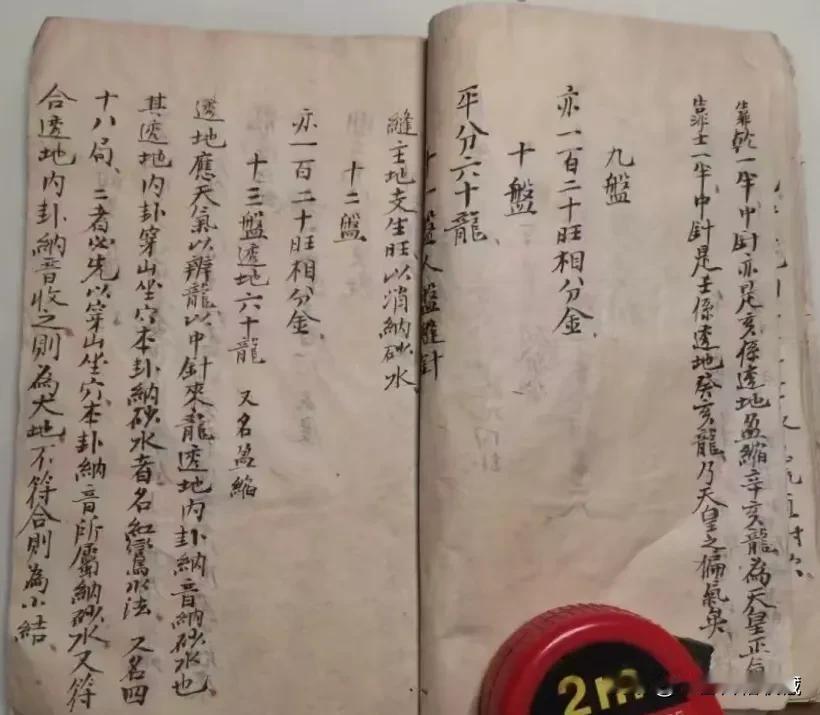 靠乾一半中針亦是亥係透地盈縮辛亥龍為天皇正
靠壬一半中針是壬係透地癸亥龍乃天皇之偏氣矣
九盤
亦一百二十旺相分金
十盤
平分六十龍
十一盤人盤縫針
縫主地支生旺以消納砂水
十二盤
亦一百二十旺相分金
十三盤透地六十龍 又名盈縮
透地應天氣以辨龍以中針來龍透地內卦納音納砂水也
其透地內卦穿山坐穴本卦納砂水者名紅鸞水法 又名四
十八局、二者必先以穿山坐穴本卦納音所屬納砂水又符
合透地內卦納音收之則為大地不符合則為小結
2m